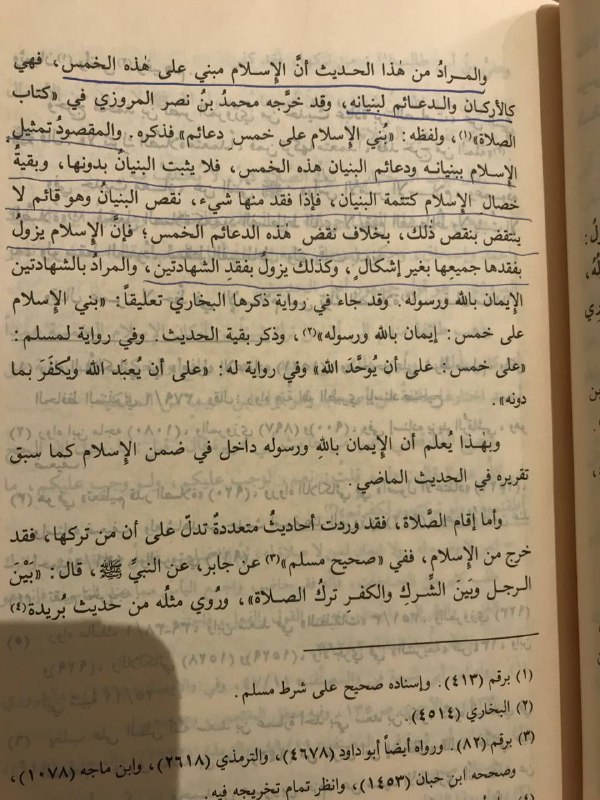 والمرادُ من هٰذا الحديث أنَّ الإِسلام مبني على هٰذه الخمس، فهي
كالأركان والدعائم لبنيانِه، وقد خرَّجه محمدُ بنُ نصر المروزي في «كتاب
الصلاة»(١)، ولفظه: «بُني الإِسلام على خمسِ دعائم» فذكره. والمقصودُ تمثيل
الإِسلام ببنيانه ودعائم البنيان هذه الخمس، فلا يثبت البنيانُ بدونها، وبقيةُ
خصال الإِسلام كتتمة البنيان، فإذا فقد منها شيء، نقص البنيانُ وهو قائم لا
ينتقض بنقص ذٰلك، بخلاف نقض هٰذه الدعائم الخمس؛ فإنَّ الإِسلام يزولُ
بفقدها جميعِها بغير إشكالٍ، وكذلك يزولُ بفقدِ الشهادتين، والمرادُ بالشهادتين
الإِيمان بالله ورسوله. وقد جاء في رواية ذكرها البخاري تعليقاً: «بني الإِسلام
على خمس: إيمان بالله ورسوله»(٢)، وذكر بقية الحديث. وفي رواية لمسلم:
«على خمس: على أن يُوحَّدَ الله» وفي رواية له: «على أن يُعبَد الله ويُكفَرَ بما
دونه».
وبهٰذا يُعلم أن الإِيمان باللهِ ورسوله داخل في ضمن الإِسلام كما سبق
تقريره في الحديث الماضي.
وأما إقام الصَّلاة، فقد وردت أحاديثُ متعددةٌ تدلّ على أن من تركها، فقد
خرج من الإِسلام، ففي «صحيح مسلم»(٣) عن جابر، عن النبيِّ ﷺ، قال: «بَيْنَ
الرجل وبَينَ الشِّركِ والكفرِ تركُ الصلاة»، ورُوي مثلُه من حديث بُريدة(٤)
(١) برقم (٤١٣). وإسناده صحيح على شرط مسلم.
(٢) البخاري (٤٥١٤).
(٣) برقم (٨٢). ورواه أيضاً أبو داود (٤٦٧٨)، والترمذي (٢٦١٨)، وابن ماجه (١٠٧٨)،
وصححه ابن حبان (١٤٥٣)، وانظر تمام تخريجه فيه.